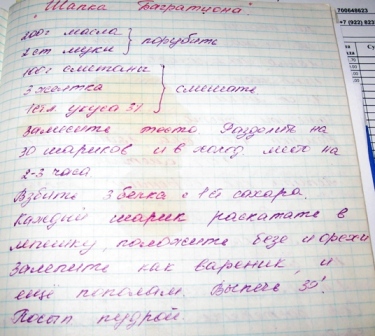 "Шапка Багратиона"
200г масла
2 ст муки } порубить
100г сметаны
3 желтка } смешать
1 ст л уксуса 3%
Замесить тесто. Разделить на
30 шариков и в холод. место на
2-3 часа
Взбить 3 белка с 1 ст сахара.
Каждый шарик раскатать в
лепёшку, положить безе и орехи
Залепить как вареник, и
ещё пополам. Выпеч 30'.
Посып пудрой.
700649623
+7 (922) 83